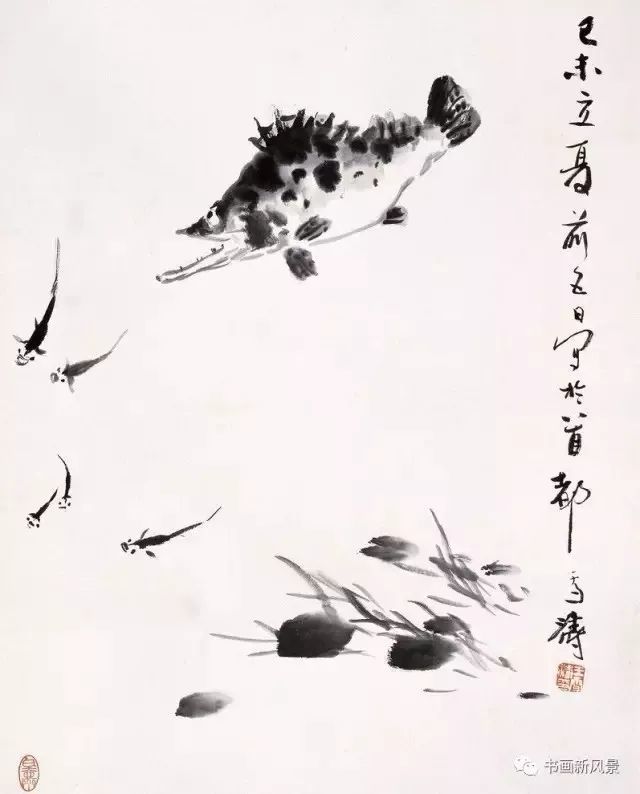 己未立夏前五日写於首都雪涛
书画新风景